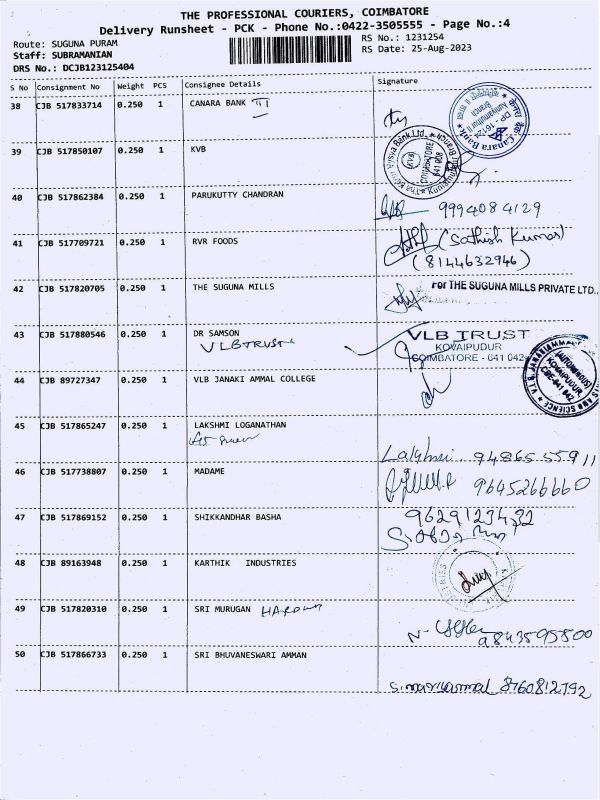 THE PROFESSIONAL COURIERS, COIMBATORE
Delivery Runsheet - PCK - Phone No.:0422-3505555 - Page No.:4
Route: SUGUNA PURAM RS No.: 1231254
Staff: SUBRAMANIAN RS Date: 25-Aug-2023
DRS No.: DCJB123125404
S No Consignment No Weight PCS Consignee Details Signature
38 CJB 517833714 0.250 1 CANARA BANK
Canara Bank
39 CJB 517850107 0.250 1 KVB
COIMBATORE
641 008
40 CJB 517862384 0.250 1 PARUKUTTY CHANDRAN 9994084129
41 CJB 517709721 0.250 1 RVR FOODS (Sathish Kumar)
(8144632946)
42 CJB 517820705 0.250 1 THE SUGUNA MILLS For THE SUGUNA MILLS PRIVATE LTD.,
43 CJB 517880546 0.250 1 DR SAMSON VLB TRUST
VLBTRUST KOVAIPUDUR
COIMBATORE - 641 042
44 CJB 89727347 0.250 1 VLB JANAKI AMMAL COLLEGE
(AUTONOMOUS)
KOVAIPUDUR,
CBE-641 042
45 CJB 517865247 0.250 1 LAKSHMI LOGANATHAN
Lakshmi 9486555911
46 CJB 517738807 0.250 1 MADAME 9645266660
47 CJB 517869152 0.250 1 SHIKKANDHAR BASHA 9629123432
48 CJB 89163948 0.250 1 KARTHIK INDUSTRIES
49 CJB 517820310 0.250 1 SRI MURUGAN
9843595500
50 CJB 517866733 0.250 1 SRI BHUVANESWARI AMMAN
S. mariyammal 8760812792